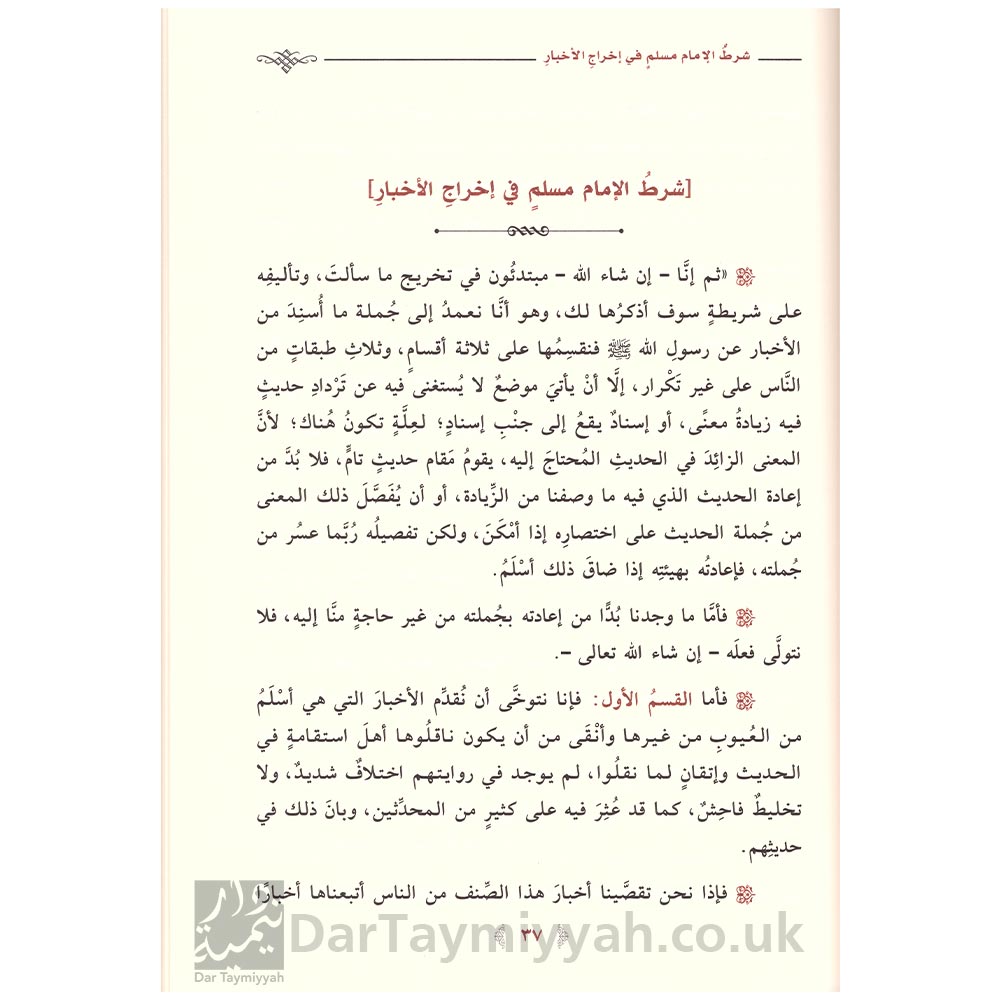 شرطُ الإمام مسلمٍ في إخراجِ الأخبارِ
[شرطُ الإمام مسلمٍ في إخراجِ الأخبارِ]
«ثم إنَّا – إن شاء الله – مبتدئُون في تخريج ما سألتَ، وتأليفِه
على شريطةٍ سوف أذكرُها لك، وهو أنَّا نعمدُ إلى جُملة ما أُسنِدَ من
الأخبار عن رسولِ الله ﷺ فنقسِمُها على ثلاثة أقسامٍ، وثلاثِ طبقاتٍ من
النَّاس على غير تَكْرار، إلَّا أنْ يأتيَ موضعٌ لا يُستغنى فيه عن تَرْدادِ حديثٍ
فيه زيادةُ معنًى، أو إسنادٌ يقعُ إلى جنْبِ إسنادٍ؛ لعِلَّةٍ تكونُ هُناك؛ لأنَّ
المعنى الزائِدَ في الحديثِ المُحتاجَ إليه، يقومُ مَقام حديثٍ تامٍّ، فلا بُدَّ من
إعادة الحديث الذي فيه ما وصفنا من الزِّيادة، أو أن يُفَصَّلَ ذلك المعنى
من جُملة الحديث على اختصارِه إذا أمْكَنَ، ولكن تفصيلُه رُبَّما عسُر من
جُملته، فإعادتُه بهيئتِه إذا ضاقَ ذلك أسْلَمُ.
فأمَّا ما وجدنا بُدًّا من إعادته بجُملته من غير حاجةٍ منَّا إليه، فلا
نتولَّى فعلَه – إن شاء الله تعالى –.
فأما القسمُ الأول: فإنا نتوخَّى أن نُقدِّم الأخبارَ التي هي أسْلَمُ
من العُيوبِ من غيرها وأنْقَى من أن يكون ناقلُوها أهلَ استقامةٍ في
الحديث وإتقانٍ لما نقلُوا، لم يوجد في روايتهم اختلافٌ شديدٌ، ولا
تخليطٌ فاحِشٌ، كما قد عُثِرَ فيه على كثيرٍ من المحدِّثين، وبانَ ذلك في
حديثِهم.
فإذا نحن تقصَّينا أخبارَ هذا الصِّنف من الناس أتبعناها أخبارًا
٣٧
دار تيمية
Dar Taymiyyah
DarTaymiyyah.co.uk